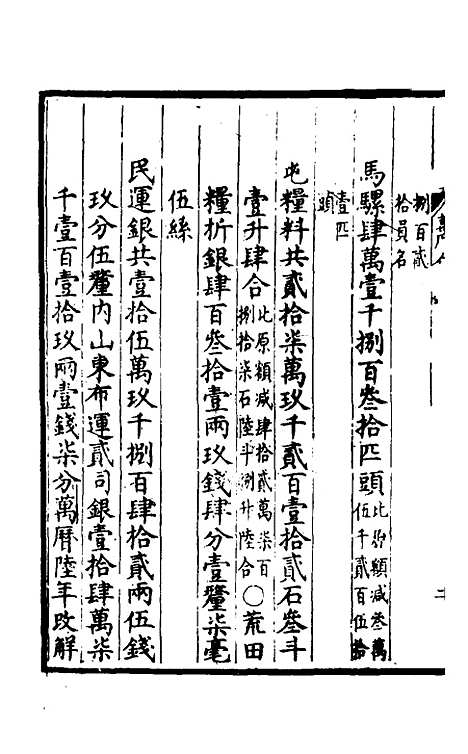 捌百貳
拾員名
馬騾肆萬壹千捌百叄拾匹頭比始額減叄萬
伍千貳百伍拾
壹匹
頭
屯糧料共貳拾柒萬玖千貳百壹拾貳石叄斗
壹升肆合比原額減肆拾貳萬柒百
捌拾柒石陸斗捌升陸合○荒田
糧折銀肆百叄拾壹兩玖錢肆分壹釐柒毫
伍絲
民運銀共壹拾伍萬玖千捌百肆拾貳兩伍錢
玖分伍釐內山東布運貳司銀壹拾肆萬柒
千壹百壹拾玖兩壹錢柒分萬曆陸年改解